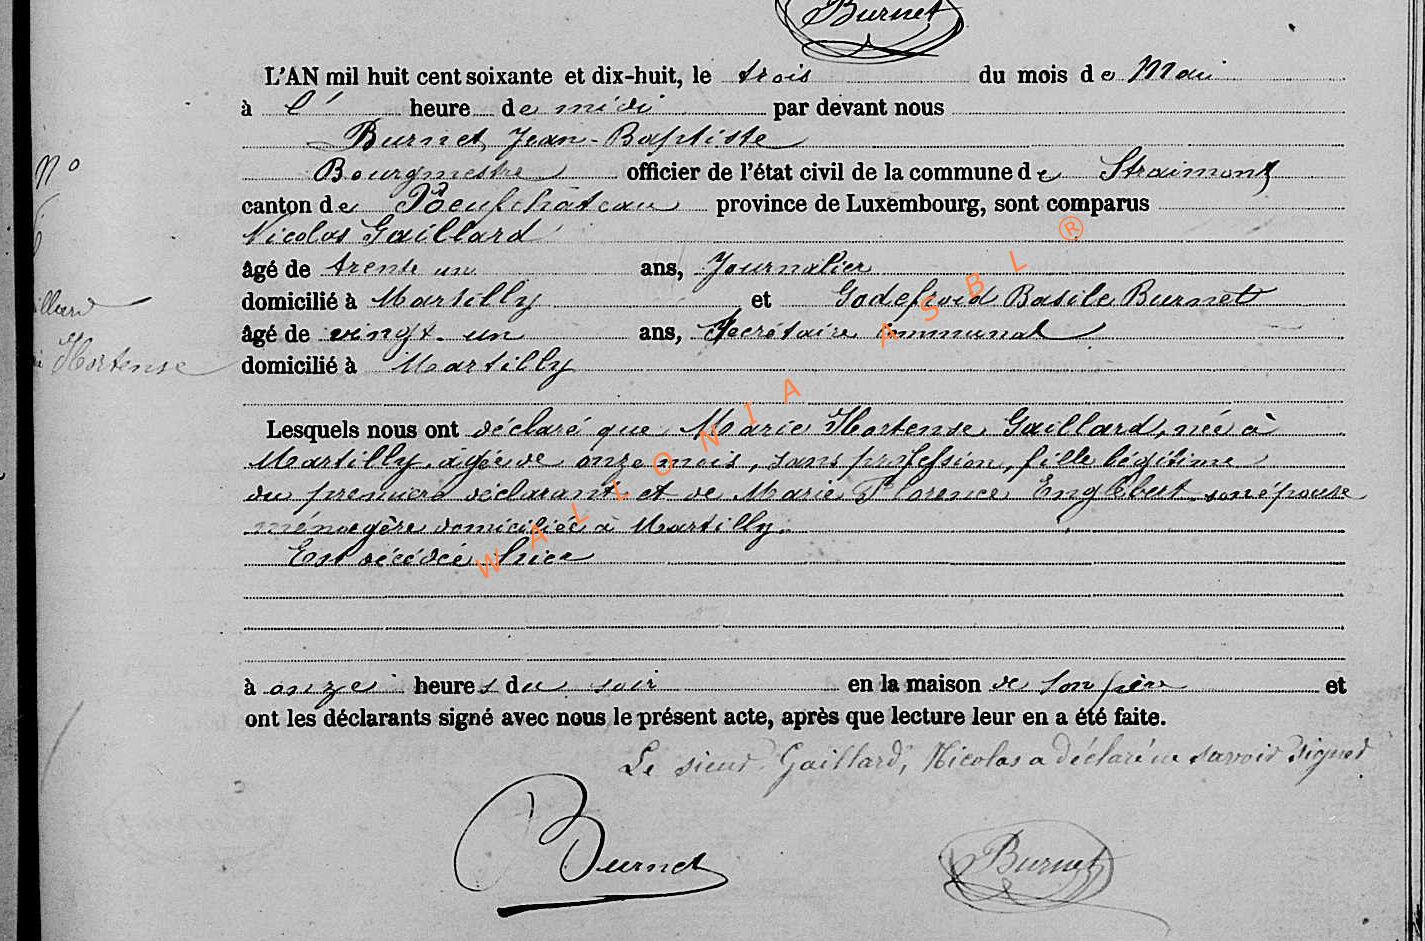 Burnet
L'AN mil huit cent soixante et dix-huit, le trois du mois de Mai
à l' heure de midi par devant nous
Burnet, Jean-Baptiste
N°
Bourgmestre officier de l'état civil de la commune de Straimont
canton de Neufchâteau province de Luxembourg, sont comparus
Nicolas Gaillard
âgé de trente un ans, Journalier
domicilié à Martilly et Godefroid Basile Burnet
âgé de vingt-un ans, Secrétaire communal
Hortense
domicilié à Martilly
Lesquels nous ont déclaré que Marie Hortense Gaillard, née à
Martilly, âgée de onze mois, sans profession, fille légitime
du premier déclarant et de Marie Florence Englebert son épouse
ménagère domiciliée à Martilly.
Est décédée hier
à onze heures du soir en la maison de son père et
ont les déclarants signé avec nous le présent acte, après que lecture leur en a été faite.
Le sieur Gaillard, Nicolas a déclaré ne savoir signer
Burnet Burnet
WALLONIA ASBL ®